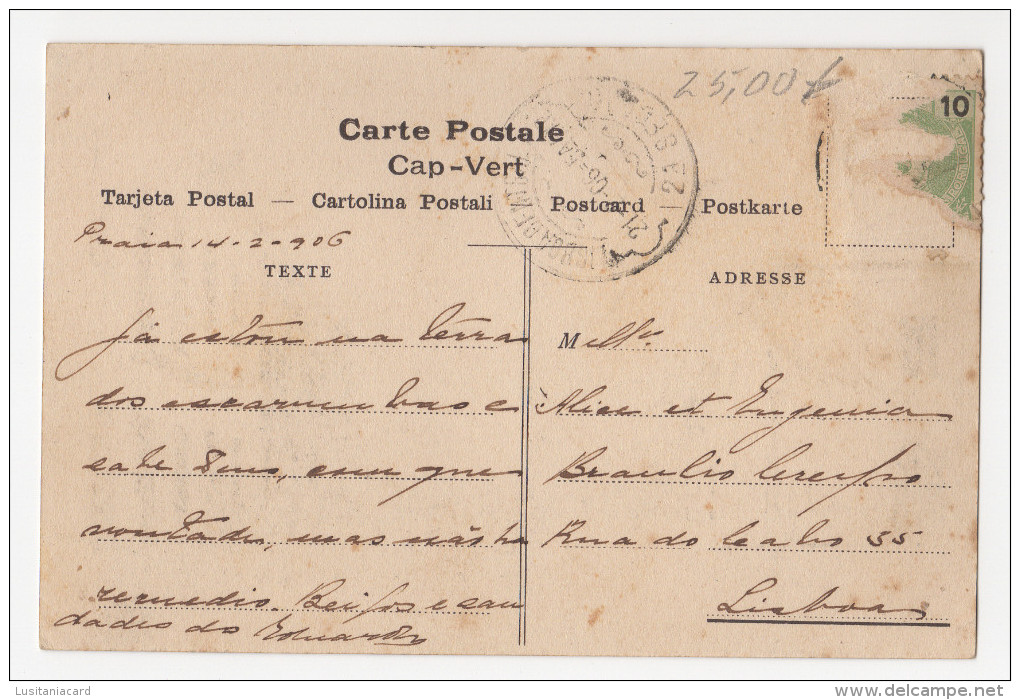 25,00
10
Carte Postale
Cap-Vert
Tarjeta Postal — Cartolina Postali Postcard Postkarte
Praia 14-2-906
TEXTE
ADRESSE
Já estou na terra
dos escarumbas e
sabe Deus, com que
vontade, mas não ha
remedio. Beijos e sau
dades do Eduardo
M elles
Alice et Eugenia
Braulio
Rua do Cabo 35
Lisboa
Lusitaniacard
www.delcampe.net